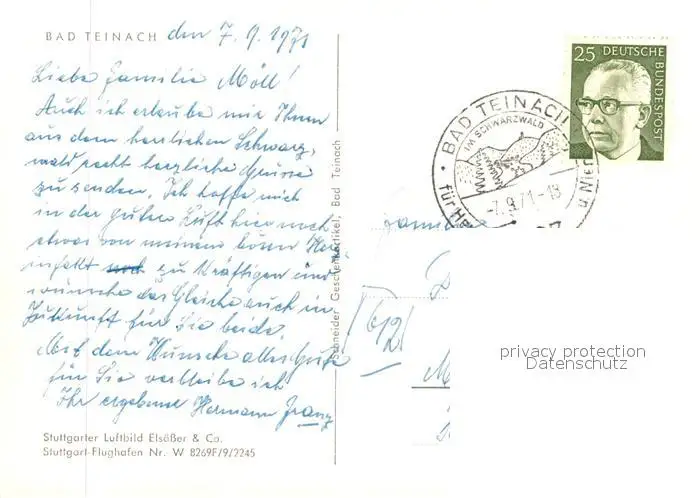 BAD TEINACH den 7.9.1971
Liebe Familie Möll!
Auch ich erlaube mir Ihnen
aus dem herrlichen Schwarz-
wald recht herzliche Grüsse
zu senden, Ich hoffe mich
in der guten Luft hier noch
etwas von meinem bösen Her-
infakt zu kräftigen und
wünsche das Gleiche auch in
Zukunft für Sie beide
Mit dem Wunsche alles Gute
für Sie verbleibe ich
Ihr ergebener Hermann Franz
Stuttgarter Luftbild Elsäßer & Co.
Stuttgart-Flughafen Nr. W 8269F/9/2245
Schneider Geschenkartikel, Bad Teinach
BAD TEINACH
IM SCHWARZWALD
-7.9.71-18
für He
u. Nie
25 DEUTSCHE
BUNDESPOST
privacy protection
Datenschutz